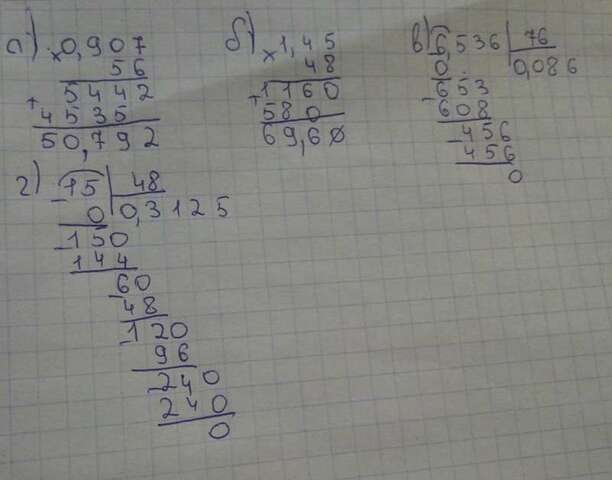 а) × 0,907
56
+ 5442
4535
50,792
б) × 1,45
48
+ 1160
580
69,60
в) 6,536 | 76
0 | 0,086
- 653
608
- 456
456
0
г) - 15 | 48
0 | 0,3125
- 150
144
- 60
48
- 120
96
- 240
240
0